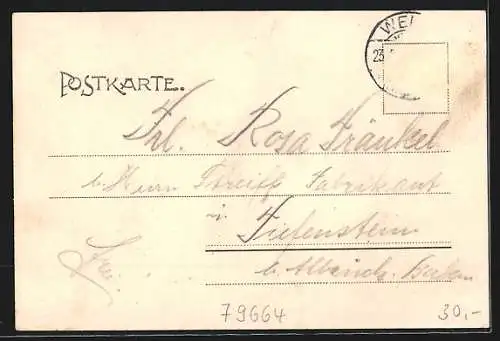 WEI
23
POSTKARTE.
Frl. Rosa Fränkel
b. Herrn Streiff Fabrikant
in
Tiefenstein
b. Albbruck. Baden
Frei
79664
30,-